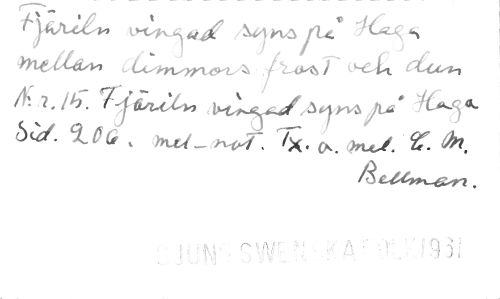 Fjäriln vingad syns på Haga
mellan dimmors frost och dun
N:r. 15. Fjäriln vingad syns på Haga
Sid. 206. mel-not. Tx. o. mel. C. M.
Bellman.
SJUNG SWENSKA FOLK 1931